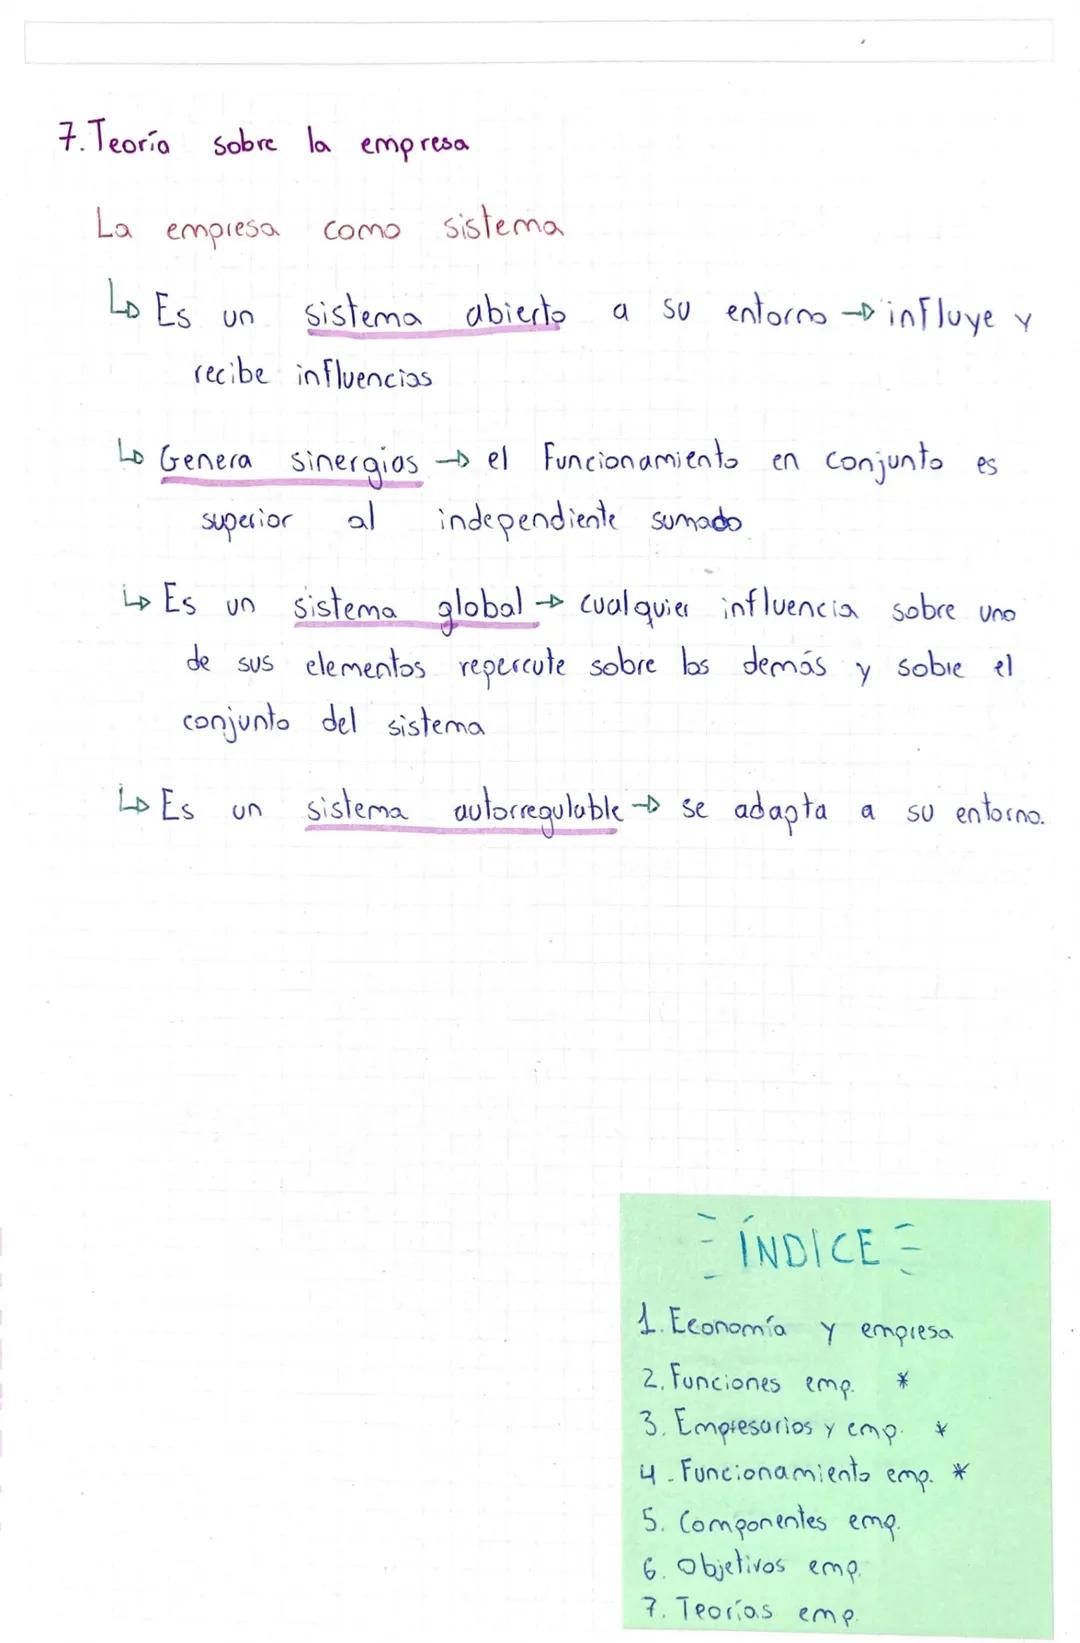 7. Teoría sobre la empresa
La empresa como sistema
↳ Es un sistema abierto a su entorno → influye y
recibe influencias
↳ Genera sinergias → el funcionamiento en conjunto es
superior al independiente sumado
↳ Es un sistema global → cualquier influencia sobre uno
de sus elementos repercute sobre los demás y sobre el
conjunto del sistema
↳ Es un sistema autorregulable → se adapta a su entorno.
ÍNDICE
1. Economía y empresa
2. Funciones emp. *
3. Empresarios y emp. *
4. Funcionamiento emp. *
5. Componentes emp.
6. Objetivos emp.
7. Teorías emp.